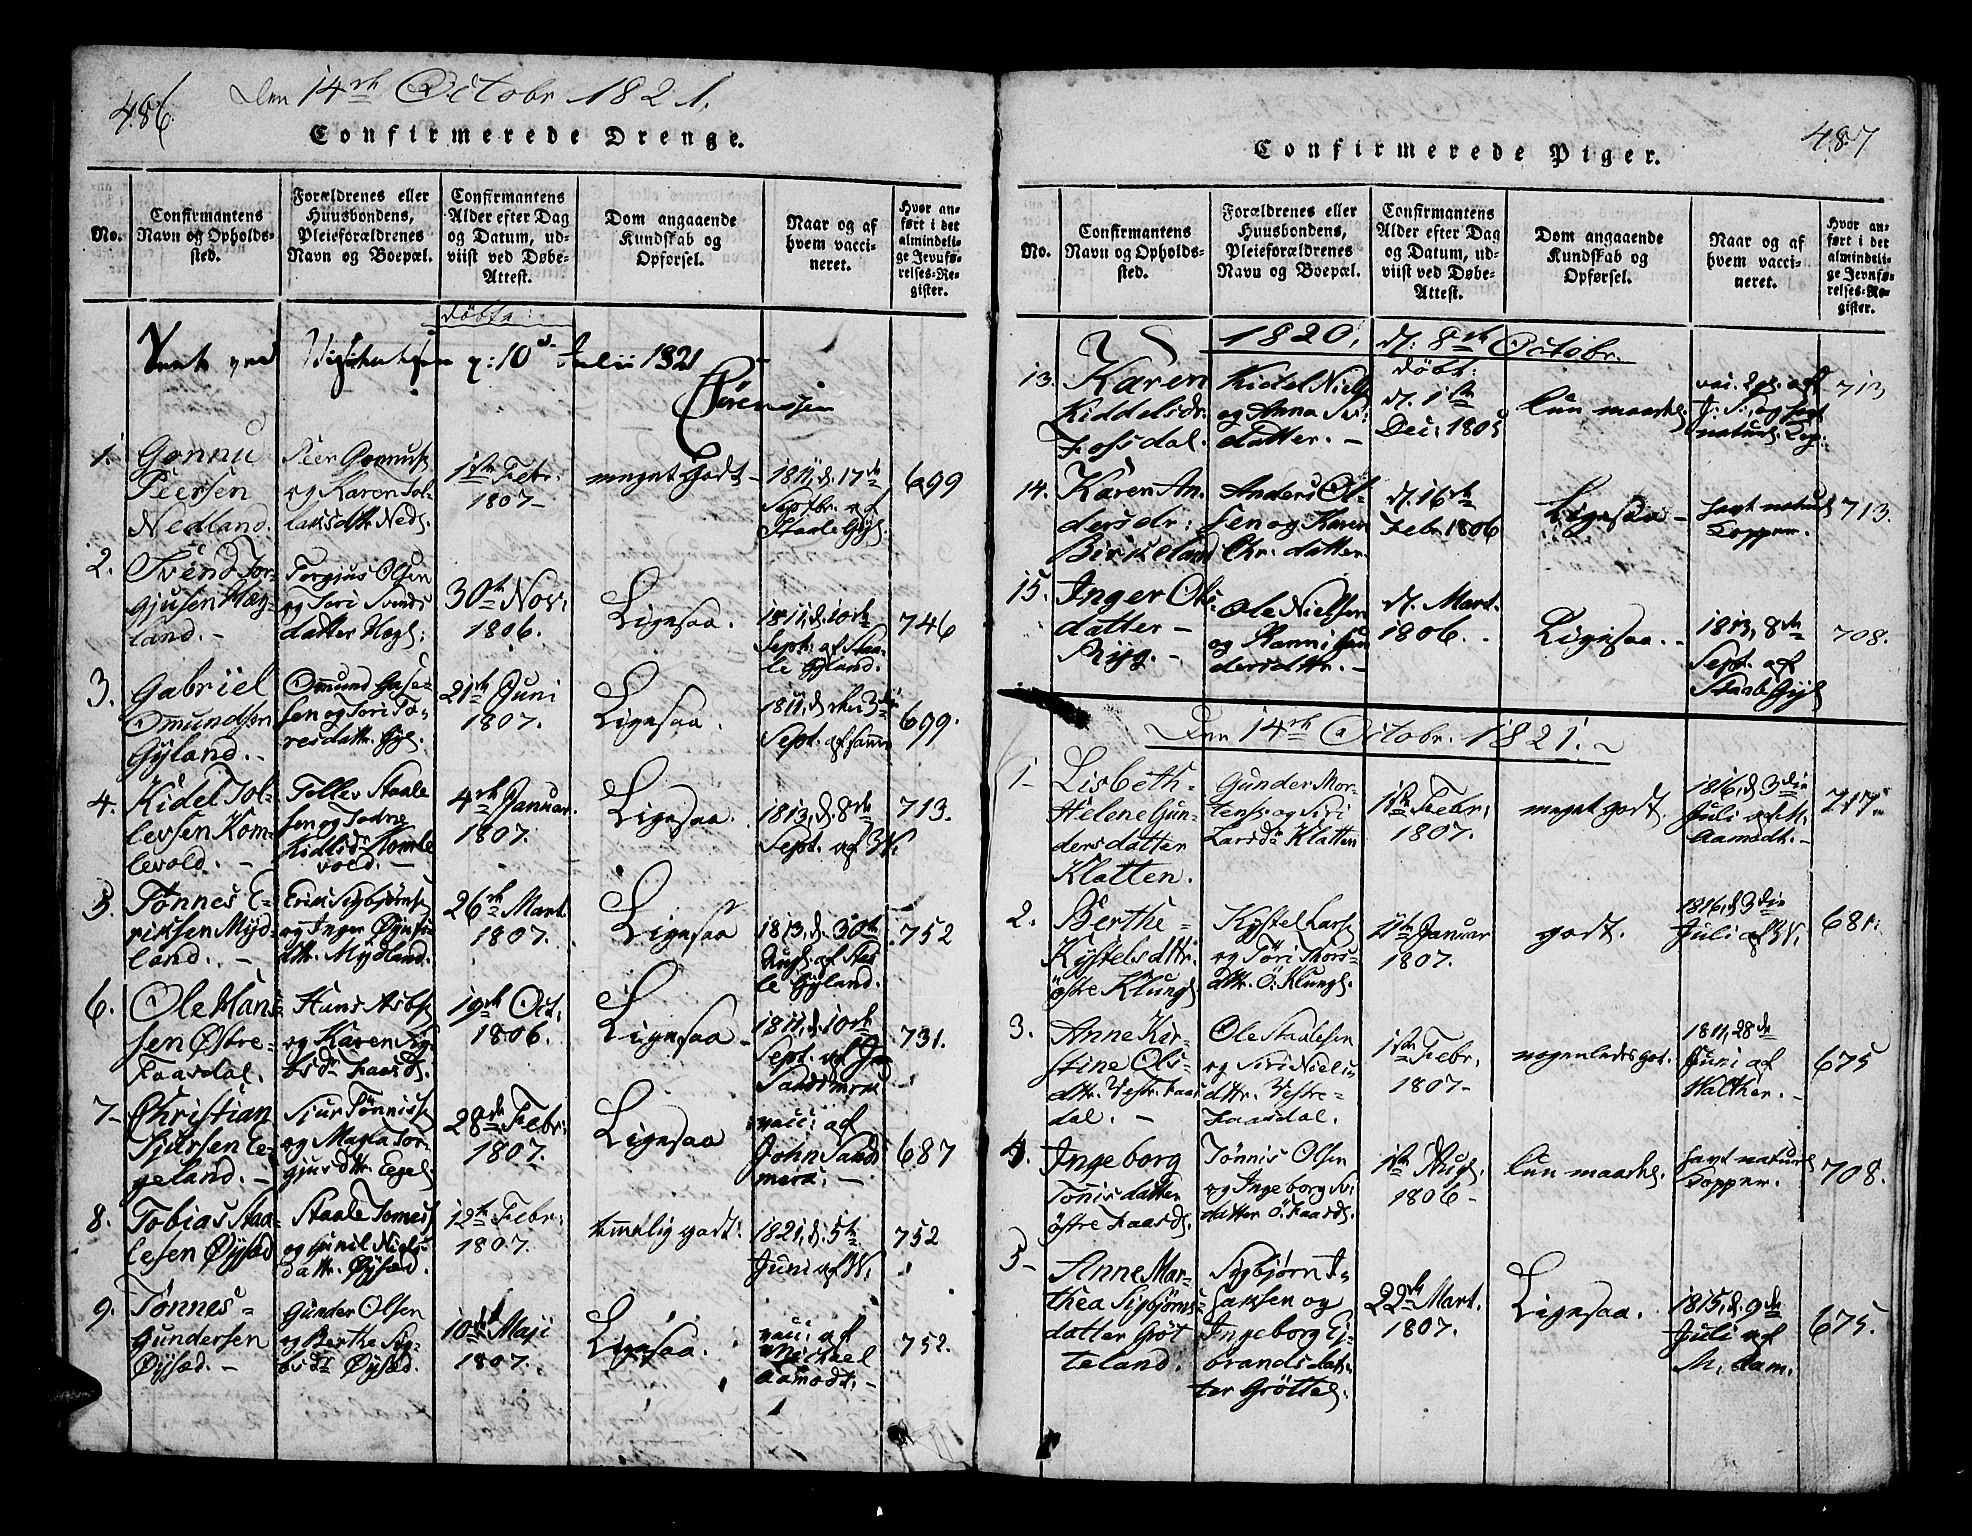 486
Den 14de Octobr 1821.
Confirmerede Drenge.
No.
Confirmantens
Navn og Opholds-
sted.
Forældrenes eller
Huusbondens,
Pleieforældrenes
Navn og Boepæl.
Confirmantens
Alder efter Dag
og Datum, ud-
viist ved Døbe-
Attest.
Dom angaaende
Kundskab og
Opførsel.
Naar og af
hvem vacci-
neret.
Hvor an-
ført i det
almindeli-
ge Jevnfø-
relses-Re-
gister.
døbte:
10 Julii 1821
Sørenssen
1.
Gonnu
Peersen
Nedland.
Peer Gonnus
og Karen Tol-
laksdtr. Neds.
1ste Febr:
1807-
meget godt-
1811, d. 17de
Septbr. af
Staale Gyl.
699
2.
Svend Tor-
gjusen Hæg-
land.-
Torgjus Olsen
og Tori Svends
datter Hægl:
30te Nov:
1806.
Ligesaa.
1811, d. 10de
Sept. af Staa-
le Gyland.
746
3.
Gabriel
Omundsen
Gyland.-
Omund Gase-
sen og Tori To-
resdattr. Gyl.
21de Juni
1807.
Ligesaa.
1811, d. 3die
Sept. af samme
699.
4.
Kidel Tol-
levsen Kom-
levold.-
Tollev Staale
sen og Todne
Kidlsdr. Komle
vold.-
4de Januar.
1807.
Ligesaa.
1813, d. 8de
Sept. af
713.
5.
Tønnes E-
riksen Myd-
land.-
Erik Sigbjørns
og Inger Øyufs
dtr. Mydland.
26de Mart.
1807.
Ligesaa
1813, d. 30te
Augs. af Staa
le Gyland.
752
6.
Ole Hans-
sen Østre-
Faasdal.
Hans Asbs
og Karen Sig-
bsdr Faasd.
19de Oct:
1806.
Ligesaa
1811, d. 10de
Sept. af Jon
Sandsmark
731.
7-
Christian
Sjursen E-
geland.-
Sjur Tønniss
og Magla Tor-
gjusdtr. Egel.
28de Febr:
1807.
Ligesaa
vacc: af
John Sands
mark.-
687
8.
Tobias Staa-
lesen Øysæd
Staale Tomess
og Gunil Niels-
dattr. Øysæd.
12te Febr:
1807.
temmelig godt.
1821, d. 5te
Juni af H.
752
9.
Tønnes-
Gundersen
Øysæd.-
Gunder Olsen
og Berthe Sig-
bsdr Øysæd.
10de Maji
1807.
Ligesaa.
vacc: af
Michael
Aamodt.-
752.
487
Confirmerede Piger.
No.
Confirmantens
Navn og Opholds-
sted.
Forældrenes eller
Huusbondens,
Pleieforældrenes
Navn og Boepæl.
Confirmantens
Alder efter Dag
og Datum, ud-
viist ved Døbe-
Attest.
Dom angaaende
Kundskab og
Opførsel.
Naar og af
hvem vacci-
neret.
Hvor an-
ført i det
almindeli-
ge Jevnfø-
relses-Re-
gister.
1820, d. 8de Octobr.
13.
Karen
Kiddelsdr.
Fosdal.
Kidel Niels
og Anna Sv:
datter.-
døbt:
d. 1ste
Dec: 1805
kun maadel.
og havt
naturl. Kop:
713
14.
Karen An-
dersdr:
Birkeland
Anders Ol-
sen og Karen
Chr. datter
d. 16de
Febr 1806
Ligesaa-
havt naturl
Kopper.
713.
15.
Inger Ols-
datter-
Ryg.-
Ole Nielsen
og Hanni Gun
dersdattr.-
d. Mart.
1806.
Ligesaa.-
1813, 8de
Sept. af
Staale Gyl
708.
Den 14de Octobr. 1821.
1-
Lisbeth-
Helene Gun-
dersdatter
Klatten.
Gunder Mor-
tens. og Siri
Larsdr Klatten
1ste Febr:
1807.
meget godt.
1816, d. 3die
Juli af M.
Aamodt.-
717.
2.
Berthe-
Kystelsdttr.
østre Klungl
Kystel Lars
og Töri Thors-
dtr. Ö. Klungl.
11te Januar
1807.
godt.
1816, d. 3die
Juli af
681.
3.
Anne Kir-
stine Ols-
dtr. Vestr. Faas
dal.-
Ole Staalesen
og Siri Niels
dtr. Vestre-
Faasdal.
1ste Febr.
1807-
nogenledes got.
1811, 28de
Juni af
Walther.-
675
4.
Ingeborg
Tönnisdatter
östre Faasd.
Tønnis Olsen
og Ingeborg Sv:
datter Ö. Faasd.
1ste Aug.
1806-
kun maadel.
havt naturl
Kopper.
708.
5-
Anne Mar-
thea Sigbjørns-
datter Gröt
teland.
Sigbjørn I-
saksen og
Ingeborg Ej-
brandsdat-
ter Gröttel.
22de Mart.
1807.
Ligesaa.
1815, d. 9de
Juli af
M. Aam.
675.